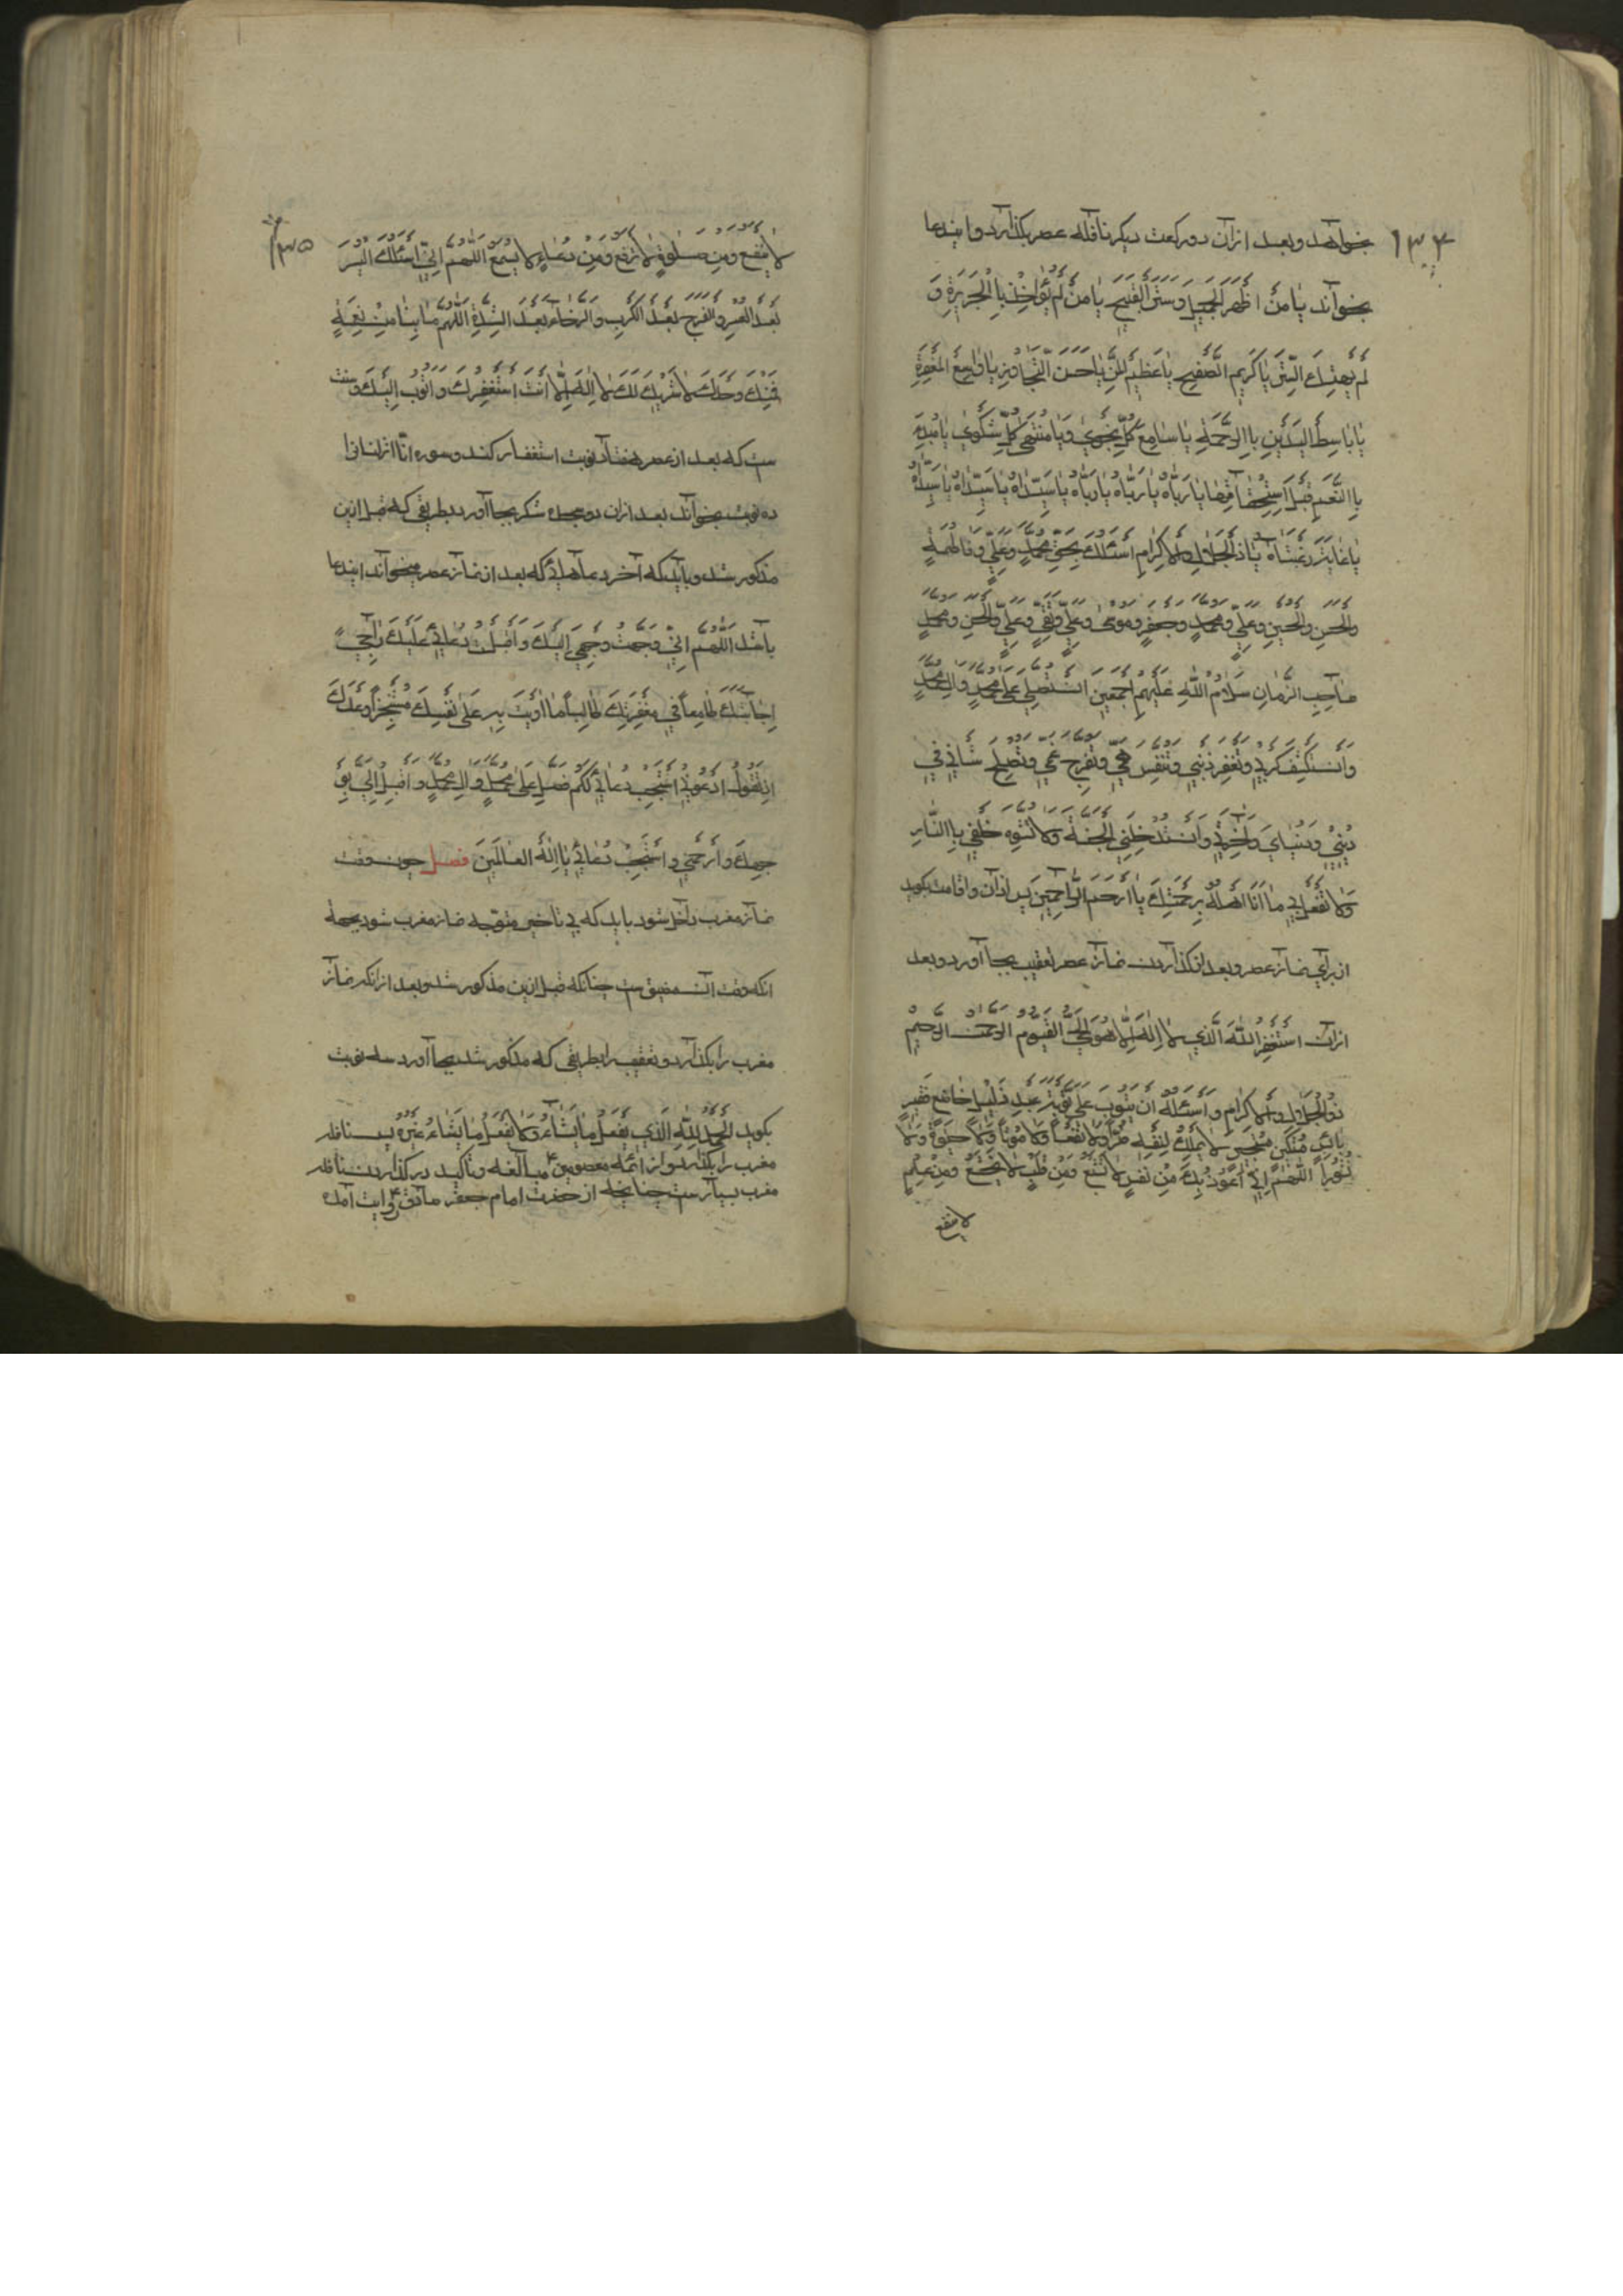 ۱۳۴
بخواهد و بعد ازان دو رکعت دیکر نافله عصر بکذارد و ایندعا
بخواند یٰا مَنْ اَظْهَرَ الْجَمیٖلَ وَ سَتَرَ الْقَبیٖحَ یٰا مَنْ لَمْ یُؤٰاخِذْ بِاالْجَریٖرَةِ وَ
لَمْ یَهْتِكِ السِّتْرَ یٰا کَریٖمَ الصَّفْحِ یٰا عَظیٖمَ الْمَنِّ یٰا حَسَنَ التَّجٰاوُزِ یٰا وٰاسِعَ الْمَغْفِرَةِ
یٰا بٰاسِطَ الْیَدَیْنِ بِاالرَّحْمَةِ یٰا سٰامِعَ کُلِّ نَجْویٰ وَ یٰا مُنْتَهیٰ کُلِّ شَکْویٰ یٰا مُبْدِءَ
بِاالنِّعَمِ قَبْلَ اسْتِحْقٰاقِهٰا یٰا رَبّٰاهُ یٰا رَبّٰاهُ یٰا رَبّٰاهُ یٰا سَیِّدٰاهُ یٰا سَیِّدٰاهُ یٰا سَیِّدٰاهُ
یٰا غٰایَةَ رَغْبَتٰاهُ یٰا ذَالْجَلٰالِ وَالْاِکْرٰامِ اَسْئَلُكَ بِحَقِّ مُحَمَّدٍ وَ عَلِیٍّ وَ فٰاطِمَةَ
وَالْحَسَنِ وَالْحُسَیْنِ وَ عَلِیٍّ وَ مُحَمَّدٍ وَ جَعْفَرٍ وَ مُوسیٰ وَ عَلِیٍّ وَ تَقِیٍّ وَ عَلِیٍّ وَالْحَسَنِ وَ مُحَمَّدٍ
صٰاحِبِ الزَّمٰانِ سَلٰامُ اللّٰهِ عَلَیْهِمْ اَجْمَعیٖنَ اَنْ تُصَلِّیَ عَلیٰ مُحَمَّدٍ وَ اٰلِ مُحَمَّدٍ
وَ اَنْ تَکْشِفَ کَرْبیٖ وَ تَغْفِرَ ذَنْبیٖ وَ تُنَفِّسَ هَمّیٖ وَ تُفَرِّجَ غَمّیٖ وَ تُصْلِحَ شَاْنیٖ فیٖ
دیٖنیٖ وَ دُنْیٰایَ وَ اٰخِرَتیٖ وَ اَنْ تُدْخِلَنِی الْجَنَّةَ وَلٰا تُشَوِّهَ خَلْقیٖ بِاالنّٰارِ
وَلٰا تَفْعَلْ بیٖ مٰا اَنَا اَهْلُهُ بِرَحْمَتِكَ یٰا اَرْحَمَ الرّٰاحِمیٖنَ پس اذان و اقامت بکوید
از برای نماز عصر و بعد از کذاردن نماز عصر تعقیب بجا آورد و بعد
ازان اَسْتَغْفِرُ اللّٰهَ الَّذیٖ لٰا اِلٰهَ اِلّٰا هُوَ الْحَیُّ الْقَیُّومُ الرَّحْمٰنُ الرَّحیٖمُ
ذُو الْجَلٰالِ وَالْاِکْرٰامِ وَ اَسْئَلُهُ اَنْ یَتُوبَ عَلَیَّ تَوْبَةَ عَبْدٍ ذَلیٖلٍ خٰاضِعٍ فَقیٖرٍ
بٰائِسٍ مِسْکیٖنٍ مُسْتَجیٖرٍ لٰا یَمْلِكُ لِنَفْسِهِ ضَرّاً وَلٰا نَفْعاً وَلٰا مَوْتاً وَلٰا حَیٰوةً وَلٰا
نُشُوراً اَللّٰهُمَّ اِنّیٖ اَعُوذُ بِكَ مِنْ نَفْسٍ لٰا تَشْبَعُ وَ مِنْ قَلْبٍ لٰا یَخْشَعُ وَ مِنْ عِلْمٍ
لا ینفع
۱۳۵
لٰا یَنْفَعُ وَ مِنْ صَلٰوةٍ لٰا تُرْفَعُ وَ مِنْ دُعٰاءٍ لٰا یُسْمَعُ اَللّٰهُمَّ اِنّیٖ اَسْئَلُكَ الْیُسْرَ
بَعْدَ الْعُسْرِ وَالْفَرَجَ بَعْدَ الْکَرْبِ وَالرَّخٰاءَ بَعْدَ الشِّدَّةِ اَللّٰهُمَّ مٰا بِنٰا مِنْ نِعْمَةٍ
فَمِنْكَ وَحْدَكَ لٰا شَریٖكَ لَكَ لٰا اِلٰهَ اِلّٰا اَنْتَ اَسْتَغْفِرُكَ وَ اَتُوبُ اِلَیْكَ و سنت
ست که بعد از عصر هفتاد نوبت استغفار کند و سوره انّا انزلنا را
ده نوبت بخواند بعد ازان دو سجده شکر بجا آورد بطریقی که قبل ازین
مذکور شد و باید که آخر دعاهائی که بعد از نماز عصر میخواند ایندعا
باشد اَللّٰهُمَّ اِنّیٖ وَجَّهْتُ وَجْهیٖ اِلَیْكَ وَ اَقْبَلْتُ دُعٰائیٖ عَلَیْكَ رٰاجِیاً
اِجٰابَتَكَ طٰامِعاً فیٖ مَغْفِرَتِكَ طٰالِباً مٰا اَوَیْتَ بِهِ عَلیٰ نَفْسِكَ مُسْتَنْجِزاً وَعْدَكَ
اِذْ تَقُولُ اُدْعُونیٖ اَسْتَجِبْ دُعٰائیٖ لَکُمْ فَصَلِّ عَلیٰ مُحَمَّدٍ وَ اٰلِ مُحَمَّدٍ وَ اَقْبِلْ اِلَیَّ بِوَ
جهِكَ وَ ارْحَمْنیٖ وَ اسْتَجِبْ دُعٰائیٖ یٰا اِلٰهَ الْعٰالَمیٖنَ فصل چون وقت
نماز مغرب داخل شود باید که بی تاخیر متوجه نماز مغرب شود بجهة
انکه وقت آن مضیق ست چنانکه قبل ازین مذکور شد و بعد از انکه نماز
مغرب را بکذارد و تعقیب را بطریقی که مذکور شد بجا آورد سه نوبت
بکوید اَلْحَمْدُ لِلّٰهِ الَّذیٖ یَفْعَلُ مٰا یَشٰاءُ وَلٰا یَفْعَلُ مٰا یَشٰاءُ غَیْرُهُ پس نافله
مغرب را بکذارد و از ائمه معصومین ع مبالغه و تاکید در کذاردن نافله
مغرب بسیار ست چنانچه از حضرت امام جعفر صادق ع روایت آمده